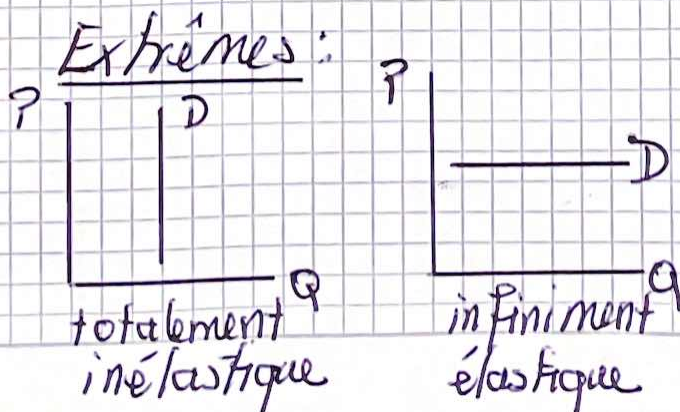 Extrêmes :
P D Q
totalement
inélastique
P D Q
infiniment
élastique